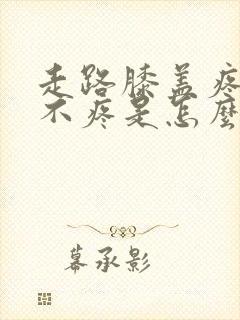 走路膝盖疼
不疼是怎麼
幕承影